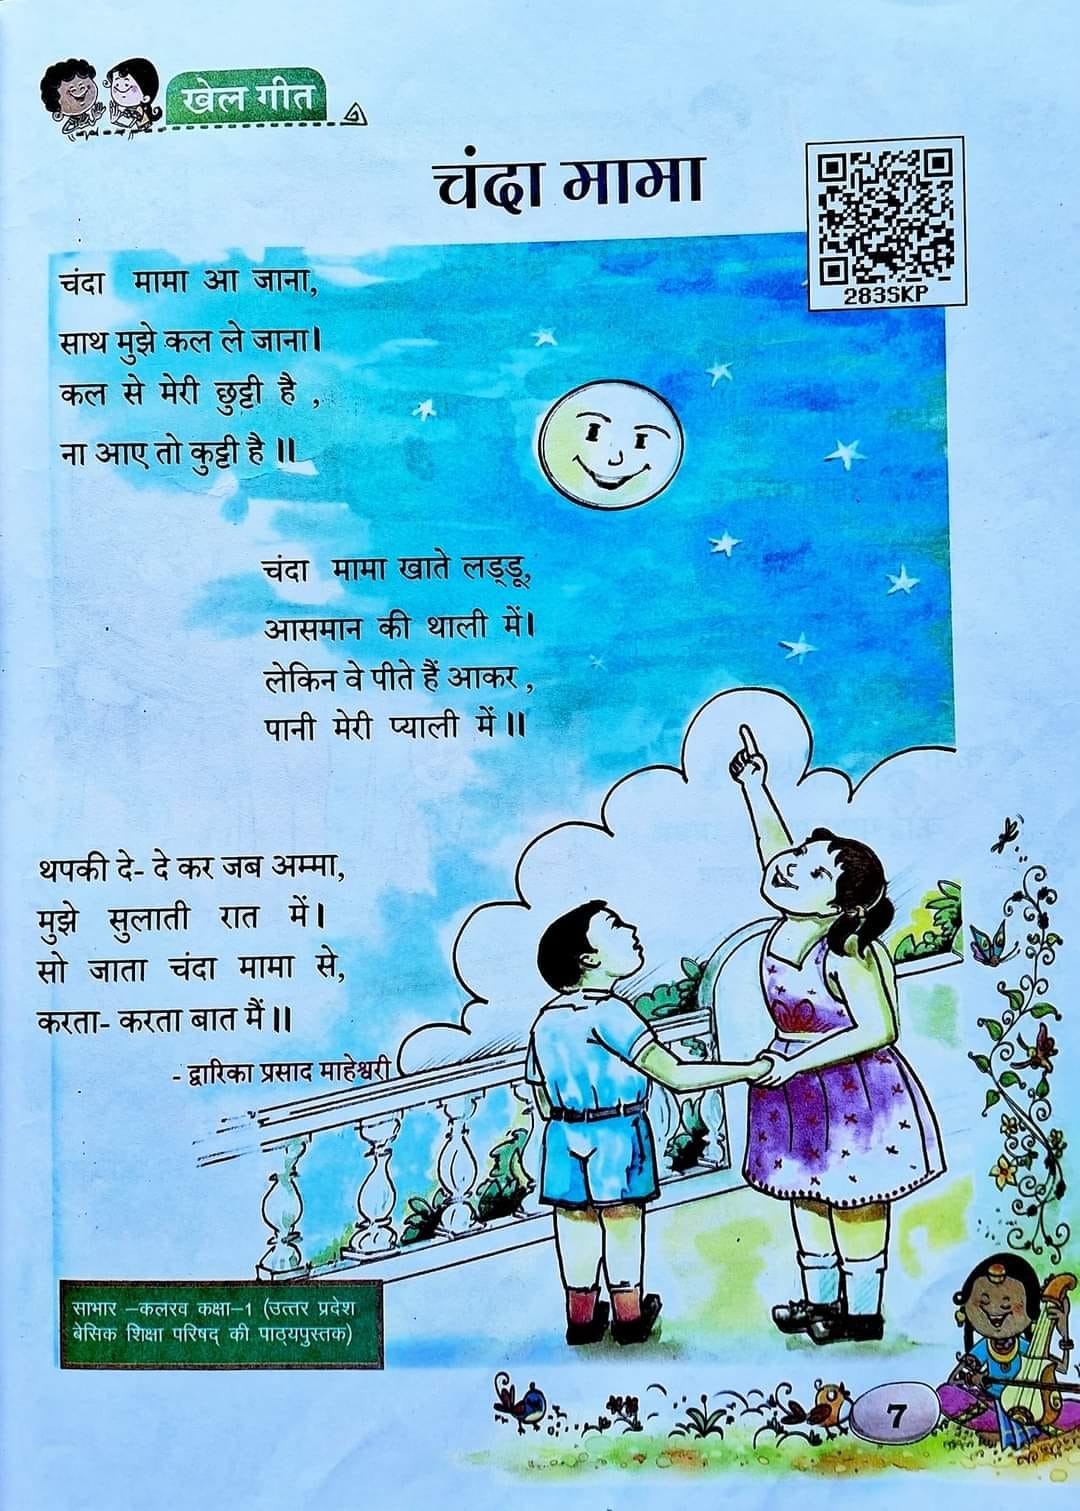 खेल गीत
चंदा मामा
283SKP
चंदा मामा आ जाना,
साथ मुझे कल ले जाना।
कल से मेरी छुट्टी है ,
ना आए तो कुट्टी है ॥
चंदा मामा खाते लड्डू,
आसमान की थाली में।
लेकिन वे पीते हैं आकर ,
पानी मेरी प्याली में ॥
थपकी दे- दे कर जब अम्मा,
मुझे सुलाती रात में।
सो जाता चंदा मामा से,
करता- करता बात मैं ॥
- द्वारिका प्रसाद माहेश्वरी
साभार –कलरव कक्षा–1 (उत्तर प्रदेश
बेसिक शिक्षा परिषद् की पाठ्यपुस्तक)
7